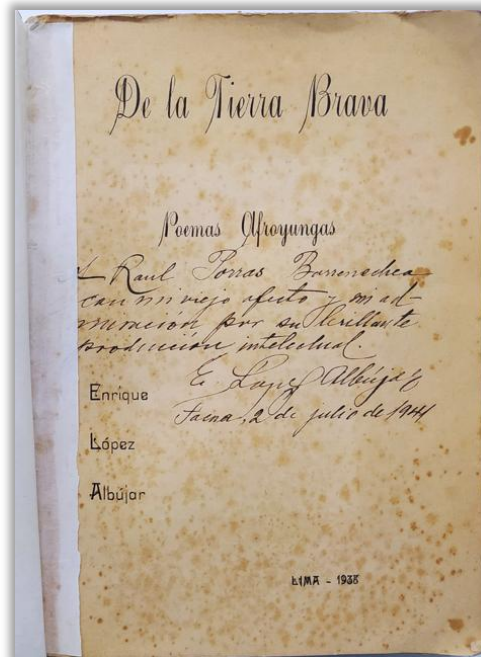 De la Tierra Brava
Poemas Afroyungas
A Raul Porras Barrenechea
con mi viejo afecto y mi ad-
miración por su brillante
producción intelectual
E. Lopez Albújar
Tacna, 2 de julio de 1941
Enrique
López
Albújar
LIMA - 1938